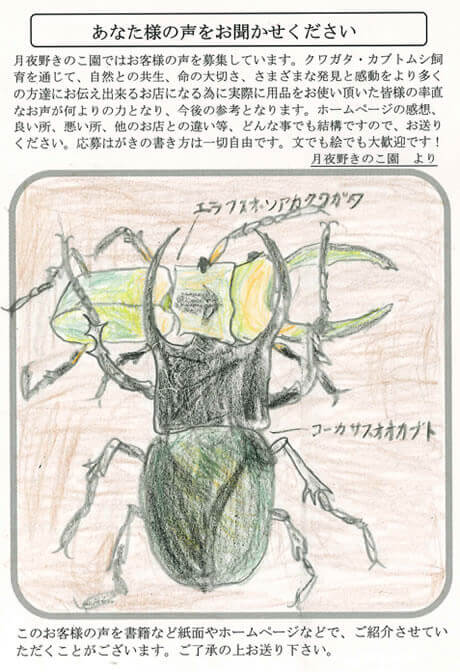 あなた様の声をお聞かせください
月夜野きのこ園ではお客様の声を募集しています。クワガタ・カブトムシ飼
育を通じて、自然との共生、命の大切さ、さまざまな発見と感動をより多く
の方達にお伝え出来るお店になる為に実際に用品をお使い頂いた皆様の率直
なお声が何よりの力となり、今後の参考となります。ホームページの感想、
良い所、悪い所、他のお店との違い等、どんな事でも結構ですので、お送り
ください。応募はがきの書き方は一切自由です。文でも絵でも大歓迎です！
月夜野きのこ園　より
エラフスホソアカクワガタ
コーカサスオオカブト
このお客様の声を書籍など紙面やホームページなどで、ご紹介させてい
ただくことがございます。ご了承の上お送り下さい。